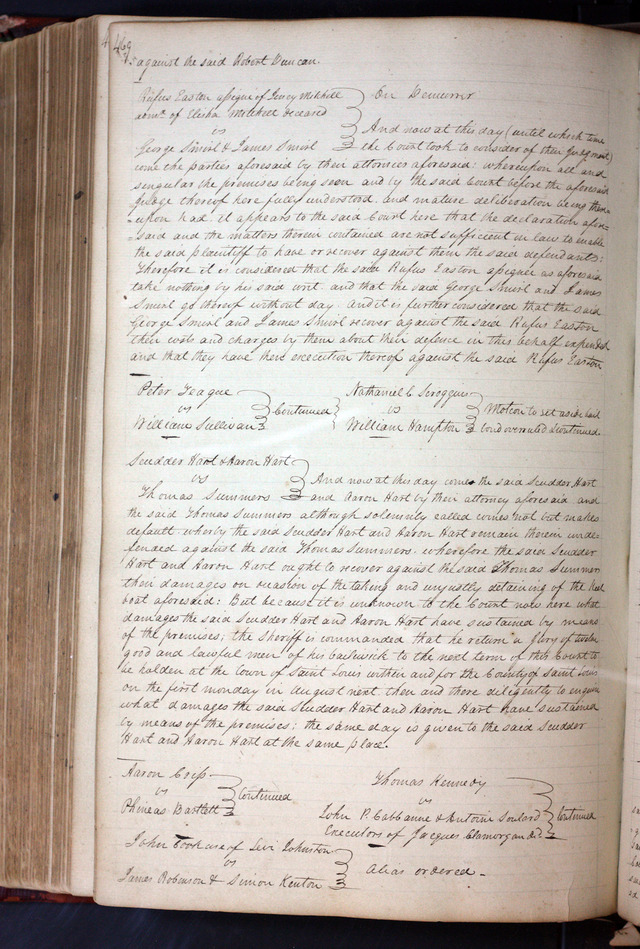 469
against the said Robert Duncan.
Rufus Easton assignee of Mitchell
admr. of Elisha Mitchell deceased
vs
George Smirl & James Smirl
On Demurrer
And now at this day (until which time
the Court took to consider of their Judgment)
come the parties aforesaid by their attornies aforesaid: whereupon all and
singular the premises being seen and by the said Court before the aforesaid
Judge thereof here fully understood and mature deliberation being there-
-upon had. it appears to the said Court here that the declaration afore-
-said and the matters therein contained are not sufficient in law to enable
the said plaintiff to have or recover against them the said defendants:
Therefore it is considered that the said Rufus Easton assignee as aforesaid
take nothing by his said writ. and that the said George Smirl and James
Smirl go thereof without day. and it is further considered that the said
George Smirl and James Smirl recover against the said Rufus Easton
their costs and charges by them about their defence in this behalf expended
and that they have their execution thereof against the said Rufus Easton
Peter Teague
vs
William Sullivan
Continued
Nathaniel C Scroggins
vs
William Hampton
Motion to set aside bail
bond overruled & continued
Scudder Hart & Aaron Hart
vs
Thomas Summers
And now at this day comes the said Scudder Hart
and Aaron Hart by their attorney aforesaid and
the said Thomas Summers although solemnly called comes not but makes
default. wherby the said Scudder Hart and Aaron Hart remain therein unde-
-fended against the said Thomas Summers. wherefore the said Scudder
Hart and Aaron Hart ought to recover against the said Thomas Summers
their damages on occasion of the taking and unjustly detaining of the keel
boat aforesaid: But because it is unknown to the Court now here what
damages the said Scudder Hart and Aaron Hart have sustained by means
of the premises; the Sheriff is commanded that he return a Jury of twelve
good and lawful men of his bailiwick to the next term of this Court to
be holden at the town of Saint Louis within and for the County of Saint Louis
on the first monday in August next then and there diligently to enquire
what damages the said Scudder Hart and Aaron Hart have sustained
by means of the premises: the same day is given to the said Scudder
Hart and Aaron Hart at the same place.
Aaron
vs
Phineas Bartlett
Continued
Thomas Kennedy
vs
John P. Cabbanne & Antoine Soulard
Executors of Jacques Clamorgan
Continued
John Cook use of Levi Johnston
vs
James Robinson & Simon Kenton
Alias ordered.